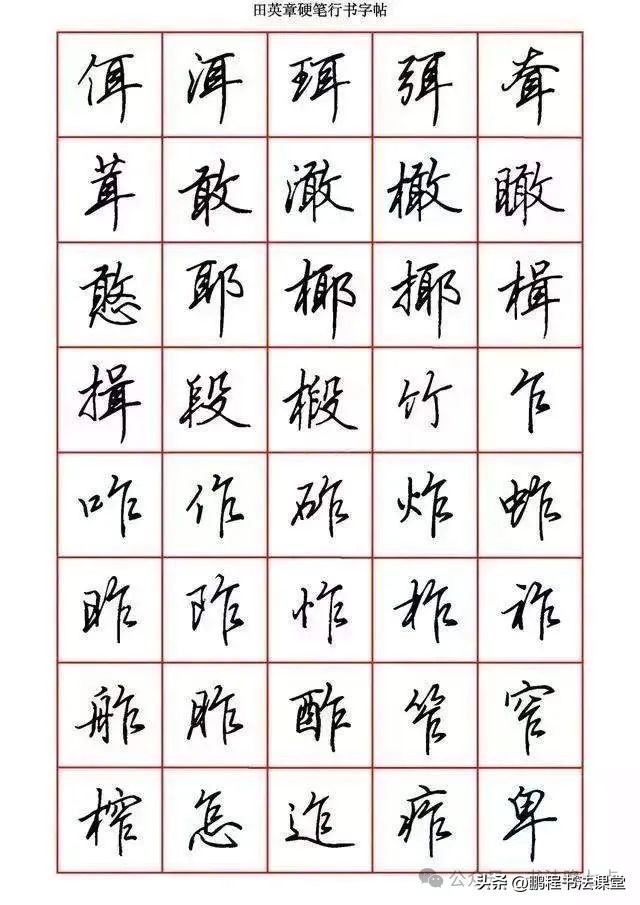 田英章硬笔行书字帖
佴 洱 珥 弭 耷
茸 敢 澉 橄 瞰
憨 耶 椰 揶 楫
揖 段 椴 竹 乍
咋 作 砟 炸 蚱
昨 阼 怍 柞 祚
舴 胙 酢 笮 窄
榨 怎 迮 痄 卑
头条 @鹏程书法课堂